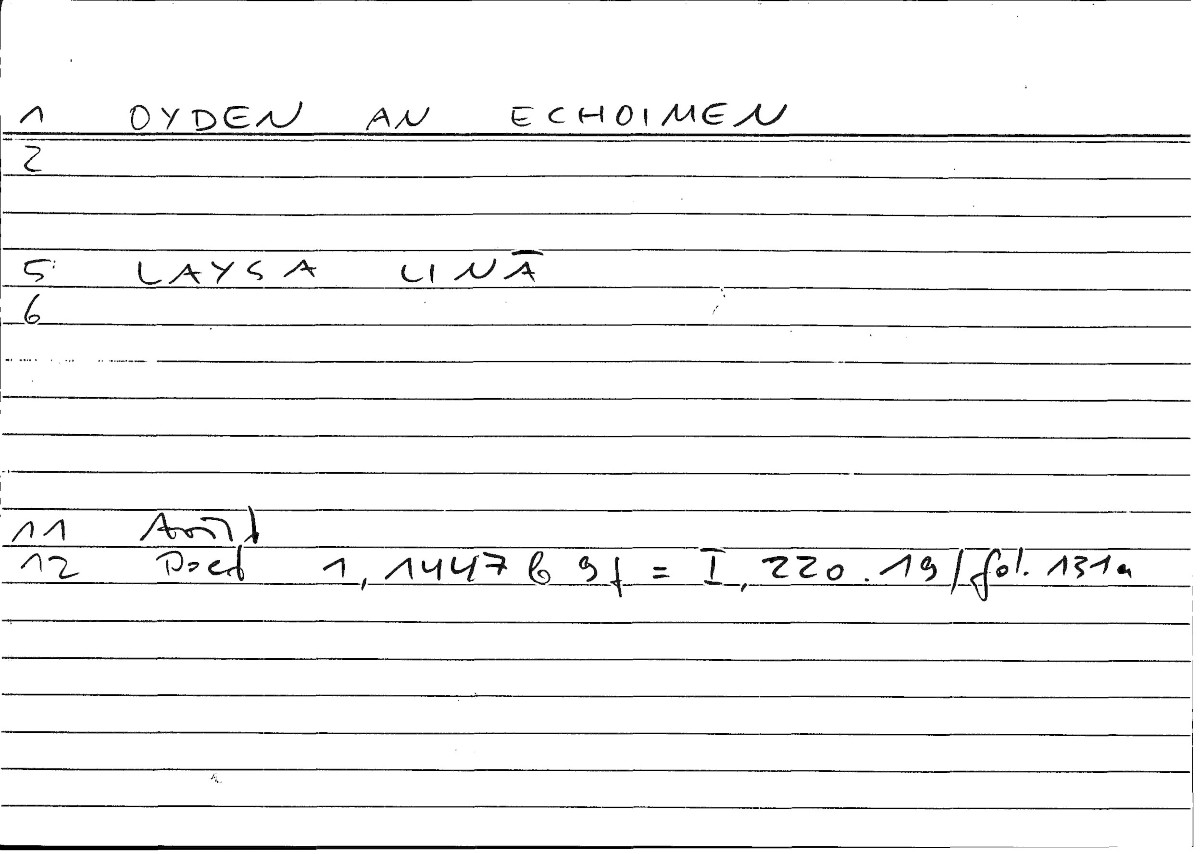 1 OYDEN AN ECHOIMEN
2
5 LAYSA LINĀ
6
11
12 Poet 1, 1447 b 9f = I, 220.19/fol. 131a